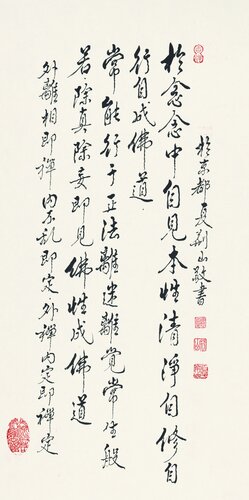 於念念中自見本性清淨自修自
行自成佛道
常能行于正法離迷離覺常生般
若除真除妄即見佛性成佛道
外離相即禪內不亂即定外禪內定即禪定
於京都荆山敬書